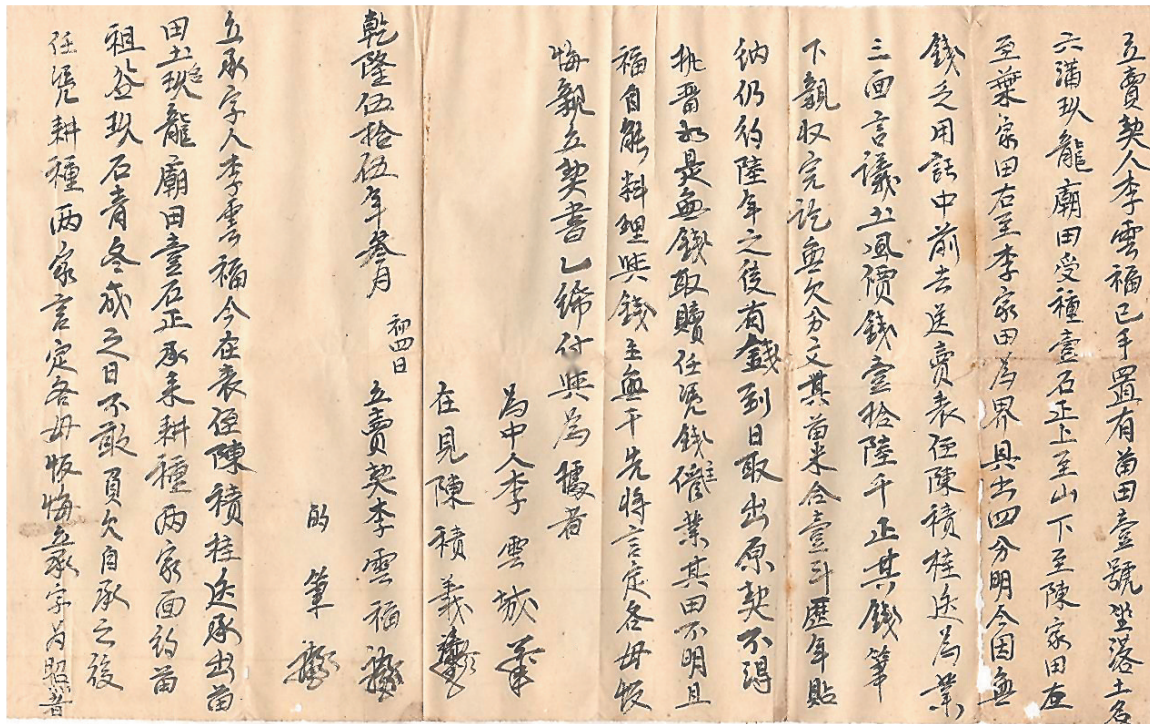 立賣契人李雲福己手置有苗田壹號坐落土名
六蒲玖龍廟田受種壹石正上至山下至陳家田左
至葉家田右至李家田為界具出四分明今因無
錢乏用託中前去送賣表侄陳積桂边為業
三面言議土風價錢壹拾陸千正其錢筆
下親收完訖無欠分文其苗米合壹斗歷年貼
納仍約陸年之後有錢到日取出原契不得
執畱如是無錢取贖任凴錢主管業其田不明且
福自能料理與錢主無干先將言定各毋恢
悔親立契書乙紙付與為據者
為中人李雲城
在見陳積義
乾隆伍拾伍年叁月 初四日
立賣契李雲福
的筆
立承字人李雲福今在表侄陳積桂边承出苗
田土名玖龍廟田壹石正承来耕種两家面約苗
租谷玖石青冬成之日不敢負欠自承之後
任凴耕種两家言定各毋恢悔立承字為照者